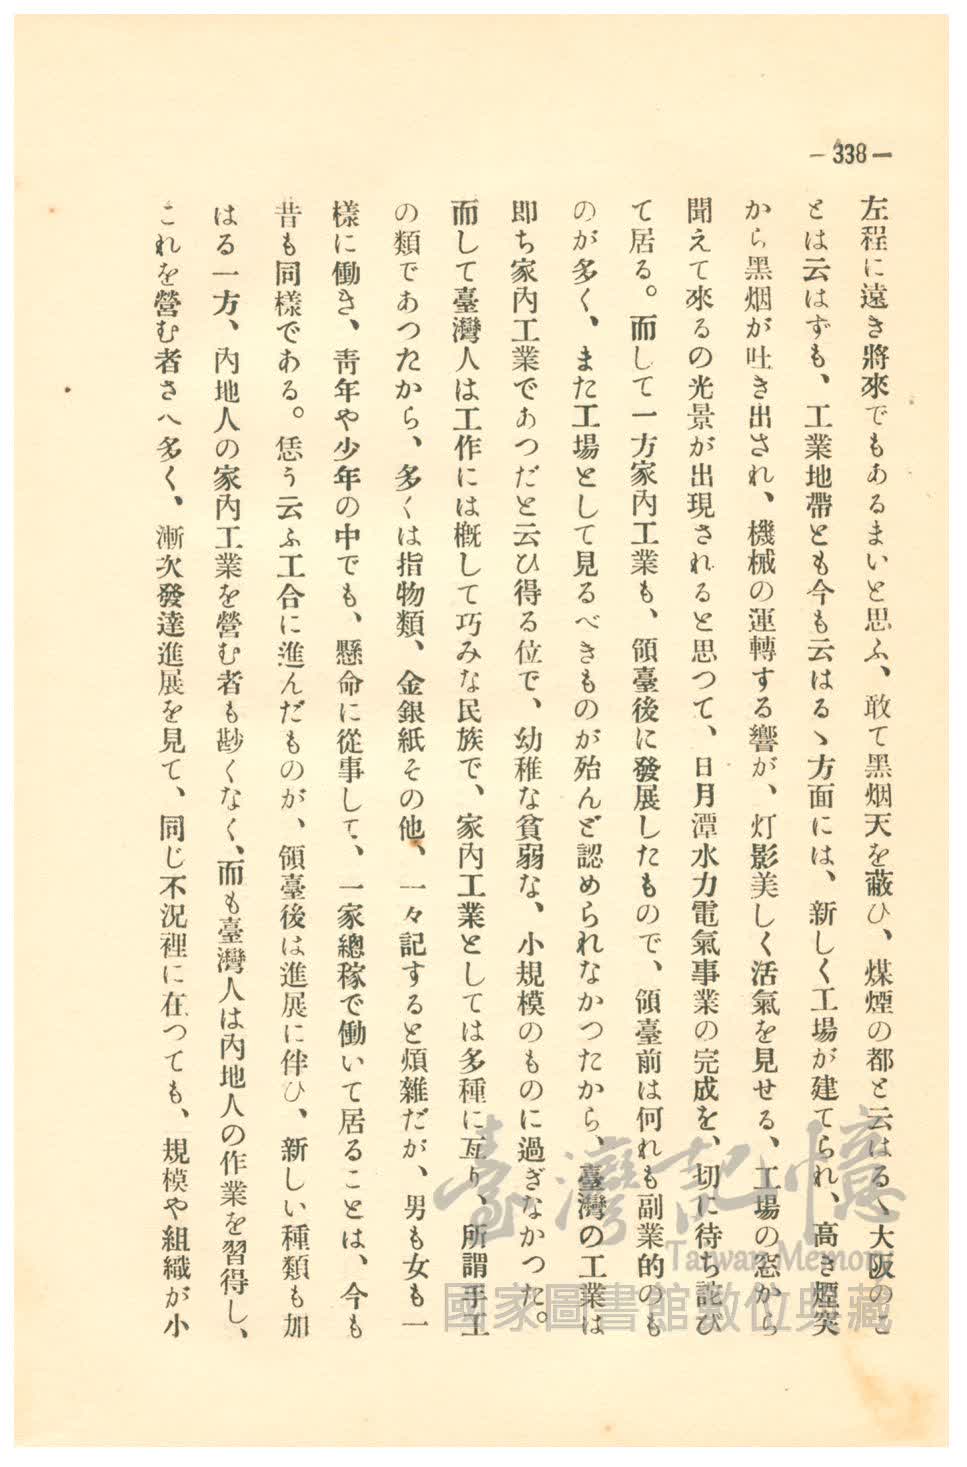 — 338 —
左程に遠き將來でもあるまいと思ふ、敢て黑烟天を蔽ひ、煤煙の都と云はるゝ大阪のこ
とは云はずも、工業地帶とも今も云はるゝ方面には、新しく工場が建てられ、高き煙突
から黑烟が吐き出され、機械の運轉する響が、灯影美しく活氣を見せる、工場の窓から
聞えて來るの光景が出現されると思つて、日月潭水力電氣事業の完成を、切に待ち詫び
て居る。而して一方家內工業も、領臺後に發展したもので、領臺前は何れも副業的のも
のが多く、また工場として見るべきものが殆んど認められなかつたから、臺灣の工業は
卽ち家內工業であつだと云ひ得る位で、幼稚な貧弱な、小規模のものに過ぎなかつた。
而して臺灣人は工作には槪して巧みな民族で、家內工業としては多種に亙り、所謂手工
の類であつたから、多くは指物類、金銀紙その他、一々記すると煩雜だが、男も女も一
樣に働き、靑年や少年の中でも、懸命に從事して、一家總稼で働いて居ることは、今も
昔も同樣である。恁う云ふ工合に進んだものが、領臺後は進展に伴ひ、新しい種類も加
はる一方、內地人の家內工業を營む者も尠くなく、而も臺灣人は內地人の作業を習得し、
これを營む者さへ多く、漸次發達進展を見て、同じ不況裡に在つても、規模や組織が小
臺灣記憶
Taiwan Memory
國家圖書館數位典藏